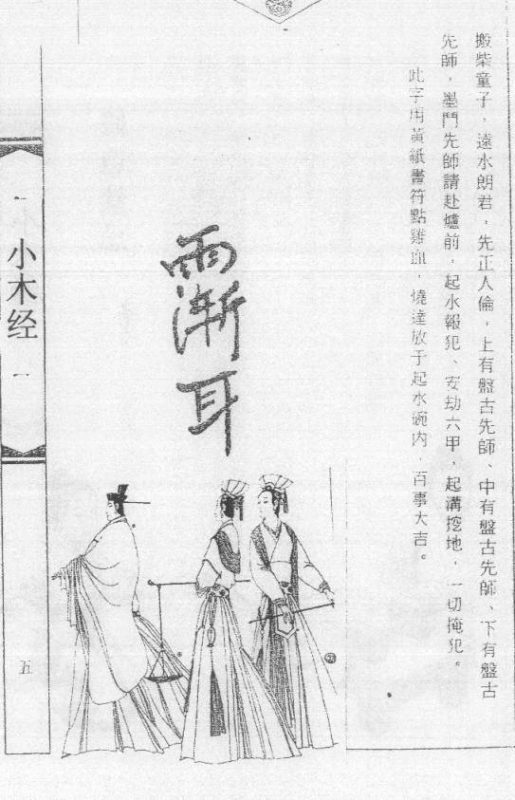 搬柴童子，遠水朗君，先正人倫，上有盤古先師、中有盤古先師、下有盤古
先師，墨門先師請赴爐前，起水報犯、安劫六甲，起溝挖地，一切掩犯。
此字用黃紙書符點雞血，燒達放于起水碗内，百事大吉。
雨漸耳
一 小木经 一
五